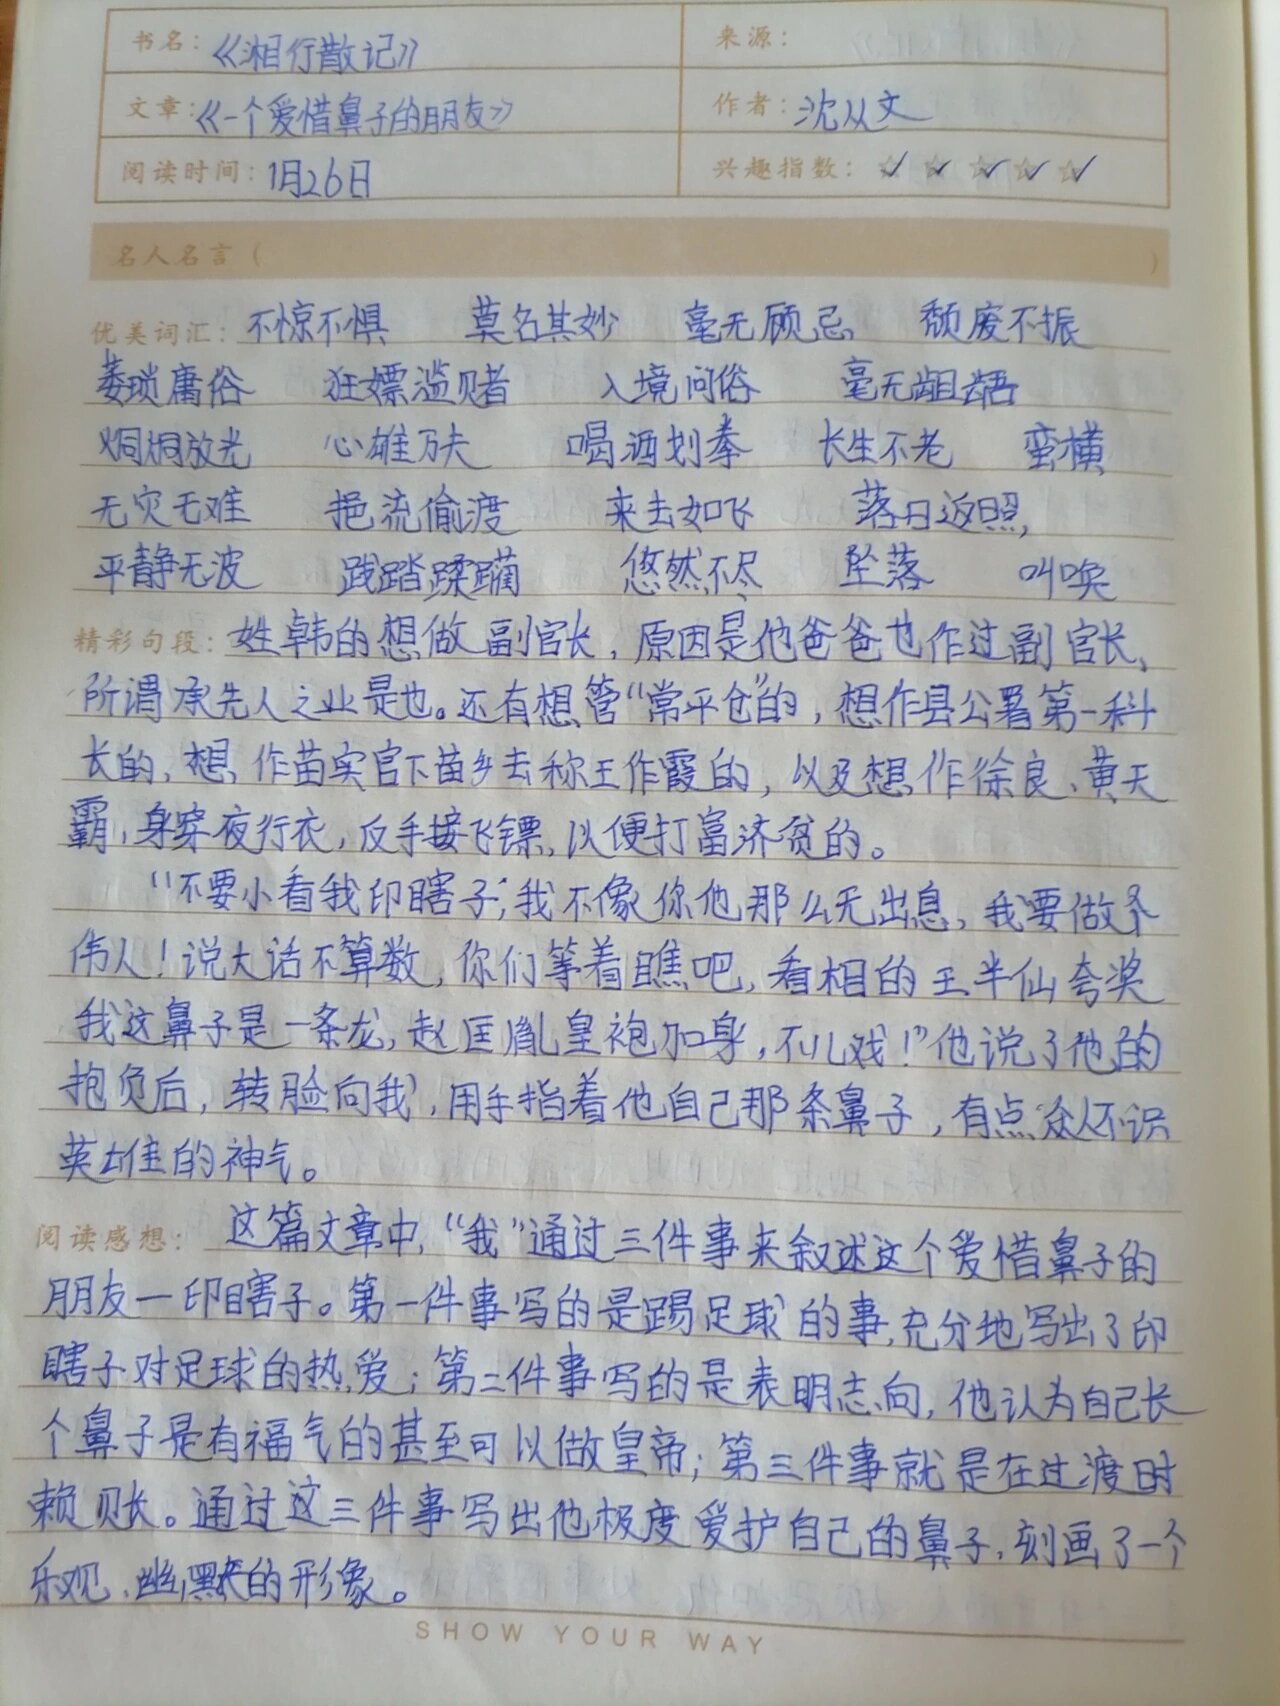 书名：《湘行散记》 来源：
文章：《一个爱惜鼻子的朋友》 作者：沈从文
阅读时间：1月26日 兴趣指数：☆✓ ☆✓ ☆✓ ☆✓ ☆✓
名人名言（ ）
优美词汇：不惊不惧 莫名其妙 毫无顾忌 颓废不振
萎琐庸俗 狂嫖滥赌 入境问俗 毫无龃龉
炯炯放光 心雄万夫 喝酒划拳 长生不老 蛮横
无灾无难 挹流偷渡 来去如飞 落日返照，
平静无波 践踏蹂躏 悠然不尽 坠落 叫唤
精彩句段：姓韩的想做副官长，原因是他爸爸也作过副官长，
所谓承先人之业是也。还有想管“常平仓”的，想作县公署第一科
长的，想作苗实官下苗乡去称王作霞的，以及想作徐良、黄天
霸，身穿夜行衣，反手接飞镖，以便打富济贫的。
“不要小看我印瞎子，我不像你他那么无出息，我要做个
伟人！说大话不算数，你们等着瞧吧，看相的王半仙夸奖
我这鼻子是一条龙，赵匡胤皇袍加身，不儿戏！”他说了他的
抱负后，转脸向我，用手指着他自己那条鼻子，有点众人不识
英雄的神气。
阅读感想：这篇文章中，“我”通过三件事来叙述这个爱惜鼻子的
朋友—印瞎子。第一件事写的是踢足球的事，充分地写出了印
瞎子对足球的热爱；第二件事写的是表明志向，他认为自己长
个鼻子是有福气的甚至可以做皇帝；第三件事就是在过渡时
赖账。通过这三件事写出他极度爱护自己的鼻子，刻画了一个
乐观、幽默的形象。
SHOW YOUR WAY